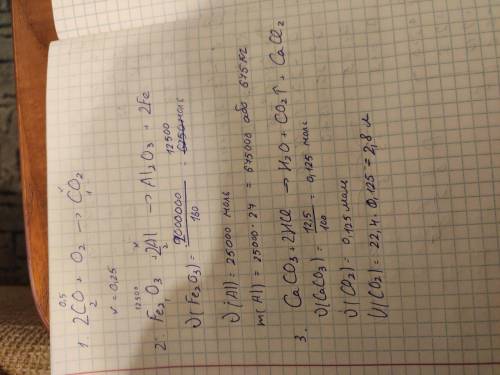 0,5 x
1. 2CO + O₂ → CO₂
2 1
v = 0,25
12500 x
2. Fe₂O₃ + 2Al → Al₂O₃ + 2Fe
1 2
ν(Fe₂O₃) = 2000000/160 = 12500 моль
ν(Al) = 25000 моль
m(Al) = 25000 · 27 = 675000 або 675 кг
3. CaCO₃ + 2HCl → H₂O + CO₂↑ + CaCl₂
ν(CaCO₃) = 12,5/100 = 0,125 моль
ν(CO₂) = 0,125 моль
V(CO₂) = 22,4 · 0,125 = 2,8 л